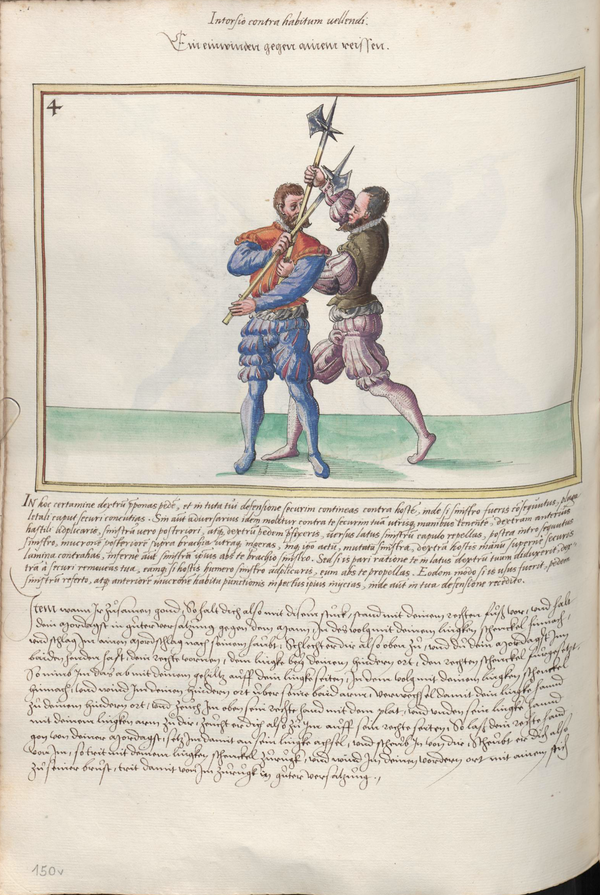 Intorsio contra habitum vellendi.
Ein einwinden gegen ainem reissen.
4
IN hoc certamine dextrū p̄ponas pedē, et in tuta tui defensione securim contineas contra hostē, inde si sinistro fueris cōsequutus, plaga
letali caput securi concutias. Sin aūt adversarius idem molitur contra te securim tuā utrisq; manibus teneto, dextram anteriori
hastili adplicario, sinistrā vero posteriori, atq; dextrū pedem p̄fixeris, versus latus sinistrū capulo repellas, postea intro sequutus
sinistro, mucronē posteriorē supra brachia utraq; ingeras, inq; ipo actu, mutata sinistra, dextrā hostis manū supprimē securis
lumina contrahas, infernè aūt sinistrā ipsius abs te brachio sinistro. Sed si is pari ratione te in latus dextrū tuum adduxerit, dex-
trā à securi removeas tua, eamq; si hostis humero sinistro adplicaris, eum abs te propellas. Eodem modo si is usus fuerit, pedem
sinistrū referto, atq; anteriore mucronē habita punctionis in pectus ipius inijcias, inde aūt in tua defensione recedito.
Item wann Ir zusamen gond, So halt dich also mit disem stuck, stand mit deinem rechten fuß vor, und halt
dein mordagst in guter versatzung gegen dem mann, In des volg mit deinem lingken schenckel hinnach,
und schlag Im ainen mordschlag nach seinem haubt, Schlecht er dir also oben zu, und du dein mordagst In
baiden henden hast, dein rechte vornen, dein lingke bey deinem hindern ort, den rechten schenckel furgesetzt,
So nimb Im das ab mit deinem gehiltz auff dein lingke seiten, In dem volg mit deinem lingken schenckel
hinnach, und wind Im deinen hindern ort uber seine baid arm, verwechsel damit dein lingke hand
zu deinem hindern ort, und zeuch Im oben sein rechte hand mit dem plat, und unden sein lingke hand
mit deinem lingken arm zu dir, Zeucht er dich also zu Im auff sein rechte seiten, So lass dein rechte hand
gon von deiner mordagst, setz Im damit an sein lingke achsel, und scheub In von dir, Scheubt er dich also
von Im, so trit mit deinem lingken schenckel zurugk, und wind Im deinen vordern ort mit ainem stich
zu seiner brust, trit damit von Im zurugk in guter versatzung.
150v